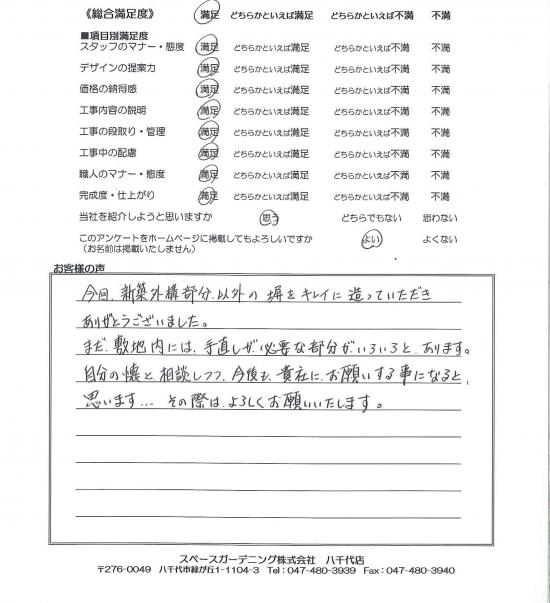 《総合満足度》 満足 どちらかといえば満足 どちらかといえば不満 不満
■項目別満足度
スタッフのマナー・態度 満足 どちらかといえば満足 どちらかといえば不満 不満
デザインの提案力 満足 どちらかといえば満足 どちらかといえば不満 不満
価格の納得感 満足 どちらかといえば満足 どちらかといえば不満 不満
工事内容の説明 満足 どちらかといえば満足 どちらかといえば不満 不満
工事の段取り・管理 満足 どちらかといえば満足 どちらかといえば不満 不満
工事中の配慮 満足 どちらかといえば満足 どちらかといえば不満 不満
職人のマナー・態度 満足 どちらかといえば満足 どちらかといえば不満 不満
完成度・仕上がり 満足 どちらかといえば満足 どちらかといえば不満 不満
当社を紹介しようと思いますか 思う どちらでもない 思わない
このアンケートをホームページに掲載してもよろしいですか よい よくない
(お名前は掲載いたしません)
お客様の声
今回、新築外構部分以外の塀をキレイに造っていただき
ありがとうございました。
まだ敷地内には、手直しが必要な部分がいろいろと、あります。
自分の懐と相談しつつ、今後も、貴社に、お願いする事になると、
思います… その際は、よろしくお願いいたします。
スペースガーデニング株式会社 八千代店
〒276-0049 八千代市緑が丘1-1104-3 Tel:047-480-3939 Fax:047-480-3940